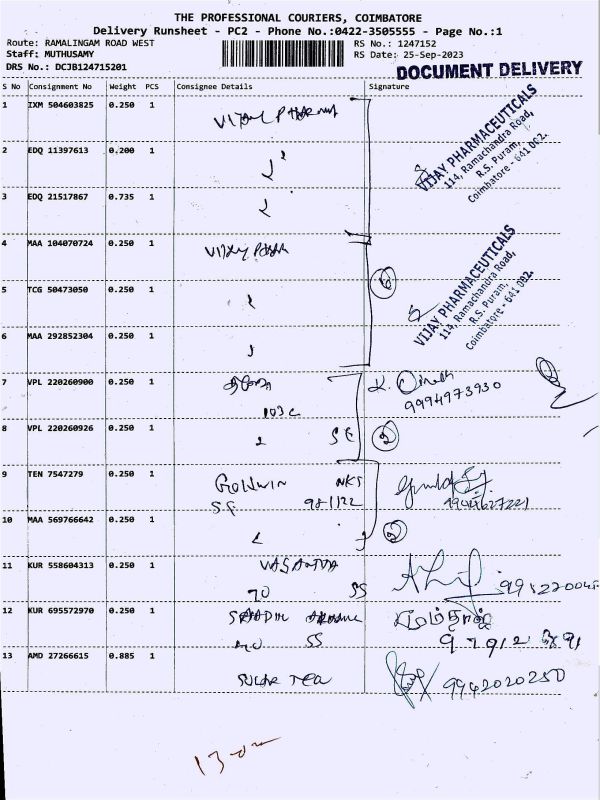 THE PROFESSIONAL COURIERS, COIMBATORE
Delivery Runsheet - PC2 - Phone No.:0422-3505555 - Page No.:1
Route: RAMALINGAM ROAD WEST
Staff: MUTHUSAMY
DRS No.: DCJB124715201
RS No.: 1247152
RS Date: 25-Sep-2023
DOCUMENT DELIVERY
S No Consignment No Weight PCS Consignee Details Signature
1 IXM 504603825 0.250 1
VIJAY PHARMA
2 EDQ 11397613 0.200 1
3 EDQ 21517867 0.735 1
VIJAY PHARMACEUTICALS
114, Ramachandra Road,
R.S. Puram,
Coimbatore - 641 002.
4 MAA 104070724 0.250 1
5 TCG 50473050 0.250 1
6
6 MAA 292852304 0.250 1
VIJAY PHARMACEUTICALS
114, Ramachandra Road,
R.S. Puram,
Coimbatore - 641 002.
7 VPL 220260900 0.250 1
K. Dinesh
9994973930
8 VPL 220260926 0.250 1
2
9 TEN 7547279 0.250 1
GOLDWIN
10 MAA 569766642 0.250 1
2
11 KUR 558604313 0.250 1
VASANTHA
70 SS
12 KUR 695572970 0.250 1
SS
13 AMD 27266615 0.885 1
TEA
9942020250